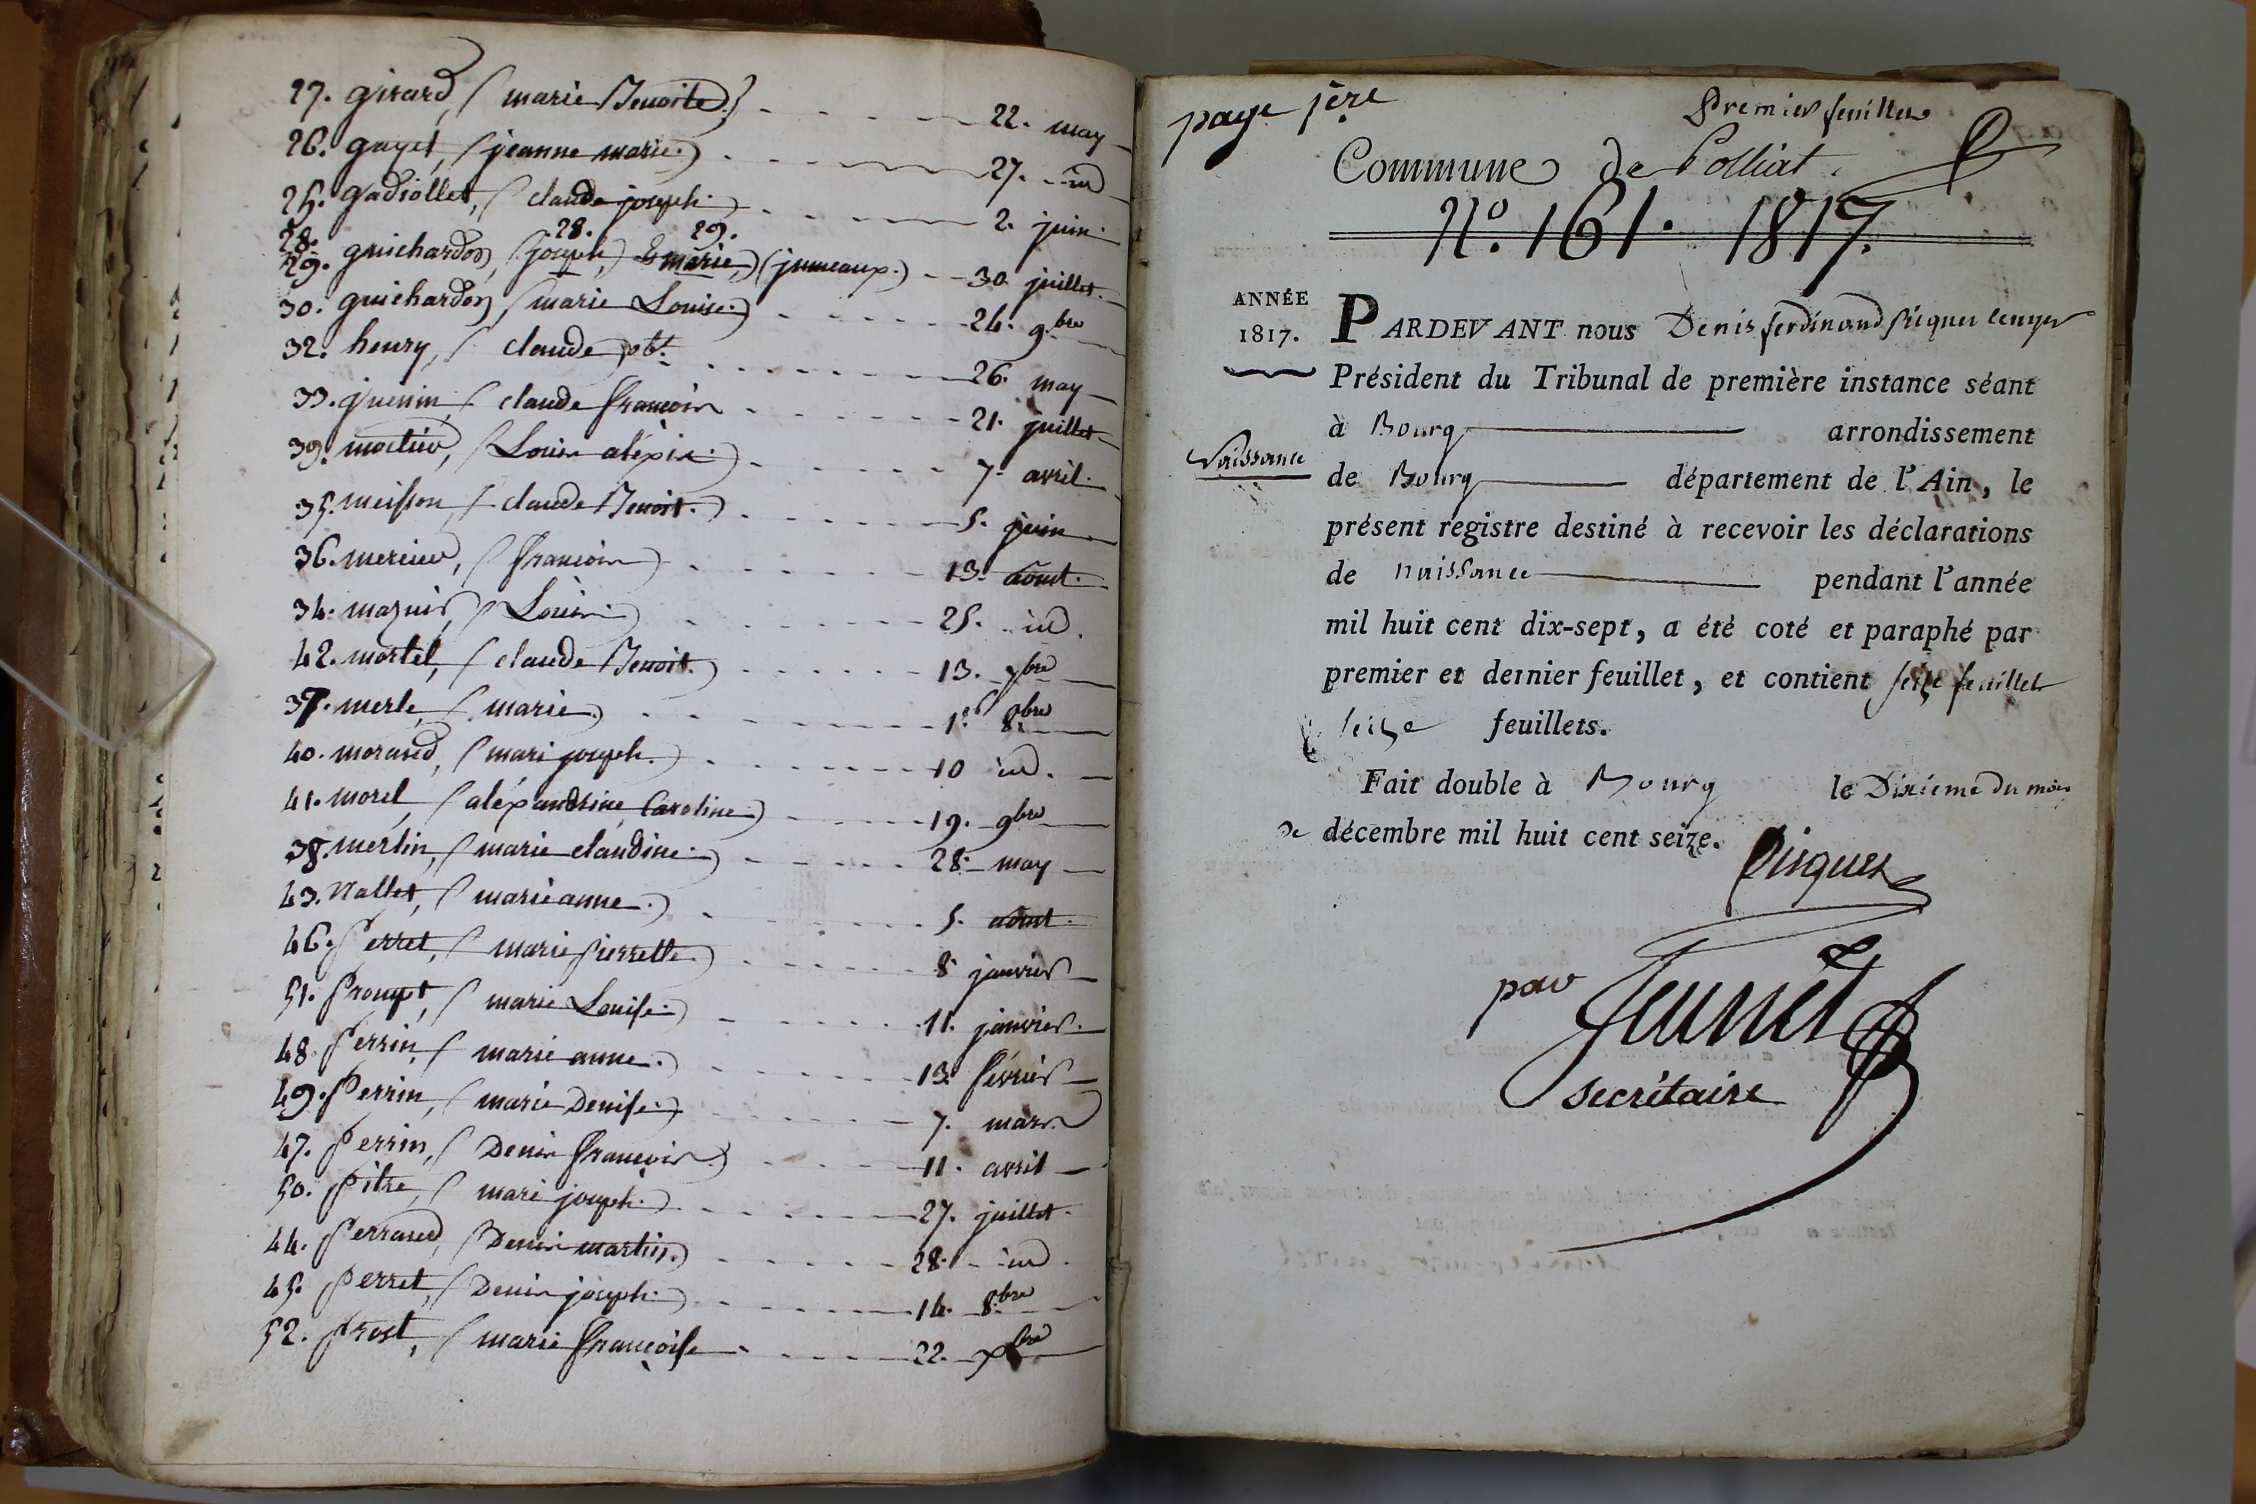 27. girard, (marie Benoite.) 22. may
26. gayet, (jeanne marie.) 27. id
25. gadiollet, (claude joseph.) 2. juin.
28. 28. 29.
29. guichardon, (joseph,) & marie,) (jumeaux.) 30 juillet.
30. guichardon, (marie Louise.) 24. 9.bre
32. henry, (claude jph. 26. may
33. guenin, (claude françois 21. juillet
39. (Louis aléxis.) 7. avril.
35. (claude Benoit.) 5. juin
36. mercier, (françois) 13. aout.
34. (Louis.) 25. id.
42. martel, (claude Benoit.) 13. 7bre
37. merle, (marie.) 1er 8bre
40. morand, (mari joseph.) 10 id.
41. morel, (aléxandrine, Caroline.) 19. 9bre
38. merlin, (marie claudine.) 28. may
43. Nallet, (marieanne.) 5. aout.
46. Perret, (marie pierrette.) 8 janvier
51. Prompt, (marie Louise.) 11. janvier.
48. Perrin, (marie anne.) 13. février
49. Perrin, (marie Denise.) 7. mars
47. Perrin, (Denis françois.) 11. avril
50. Pitre, (mari joseph.) 27. juillet.
44. Perraud, (Denis martin.) 28. id.
45. Perret, (Denis joseph.) 14. 8.bre
52. prost, (marie françoise 22. xbre
page 1ère
Premier feuillet
Commune de Polliat.
N.º 161. 1817.
ANNÉE
1817.
PARDEVANT nous Denis ferdinand Picquet Ecuyer
Président du Tribunal de première instance séant
à Bourg arrondissement
Naissance
de Bourg département de l'Ain, le
présent registre destiné à recevoir les déclarations
de naissance pendant l'année
mil huit cent dix-sept, a été coté et paraphé par
premier et dernier feuillet, et contient seize feuillets
seize feuillets.
Fait double à Bourg le Dixième du mois
de décembre mil huit cent seize.
Picquet
par
secrétaire